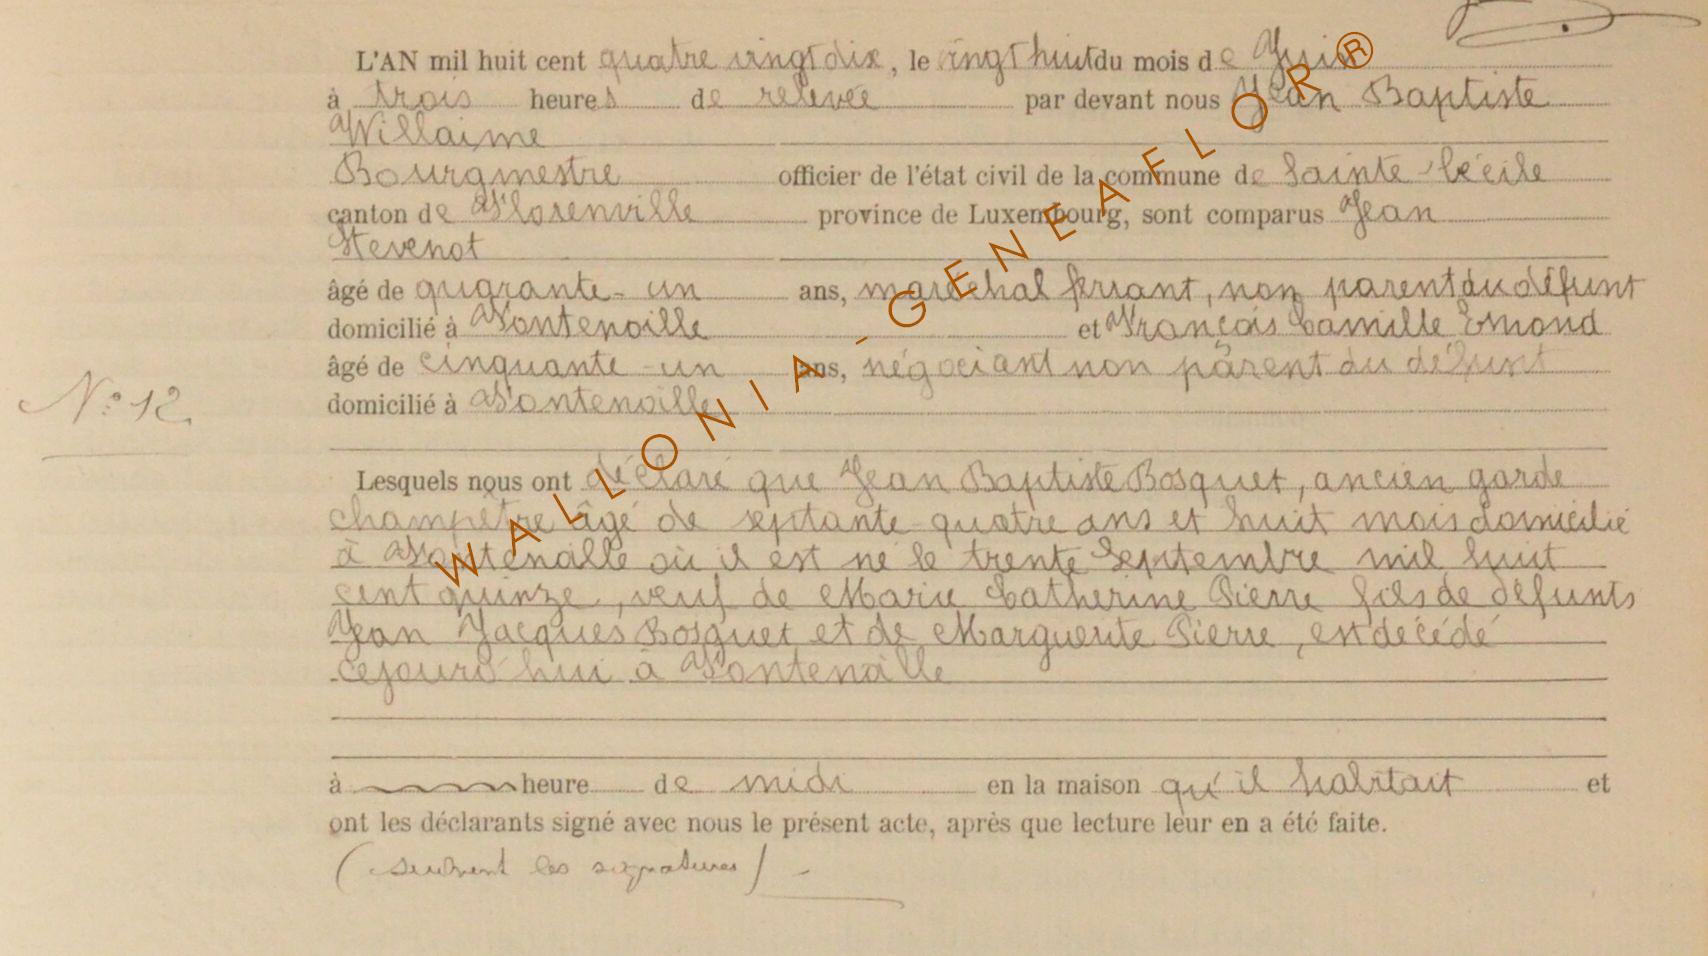 L'AN mil huit cent quatre vingt dix, le vingt huit du mois de Juin
à trois heures de relevée par devant nous Jean Baptiste
Willaime
Bourgmestre officier de l'état civil de la commune de Sainte-Cécile
canton de Florenville province de Luxembourg, sont comparus Jean
Stevenot
âgé de quarante-un ans, maréchal ferrant, non parent du défunt
domicilié à Fontenoille et François Camille Emond
âgé de cinquante-un ans, négociant non parent du défunt
N° 12.
domicilié à Fontenoille
Lesquels nous ont déclaré que Jean Baptiste Bosquet, ancien garde
champêtre âgé de septante-quatre ans et huit mois domicilié
à Fontenoille où il est né le trente Septembre mil huit
cent quinze, veuf de Marie Catherine Pierre fils de défunts
Jean Jacques Bosquet et de Marguerite Pierre, est décédé
cejourd'hui à Fontenoille
à heure de midi en la maison qu'il habitait et
ont les déclarants signé avec nous le présent acte, après que lecture leur en a été faite.
(suivent les signatures)
WALLONIA - GENEAFLOR®